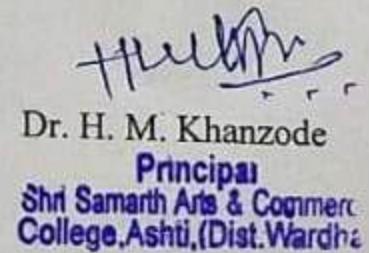 Dr. H. M. Khanzode
Principal
Shri Samarth Arts & Commerc
College,Ashti,(Dist.Wardha